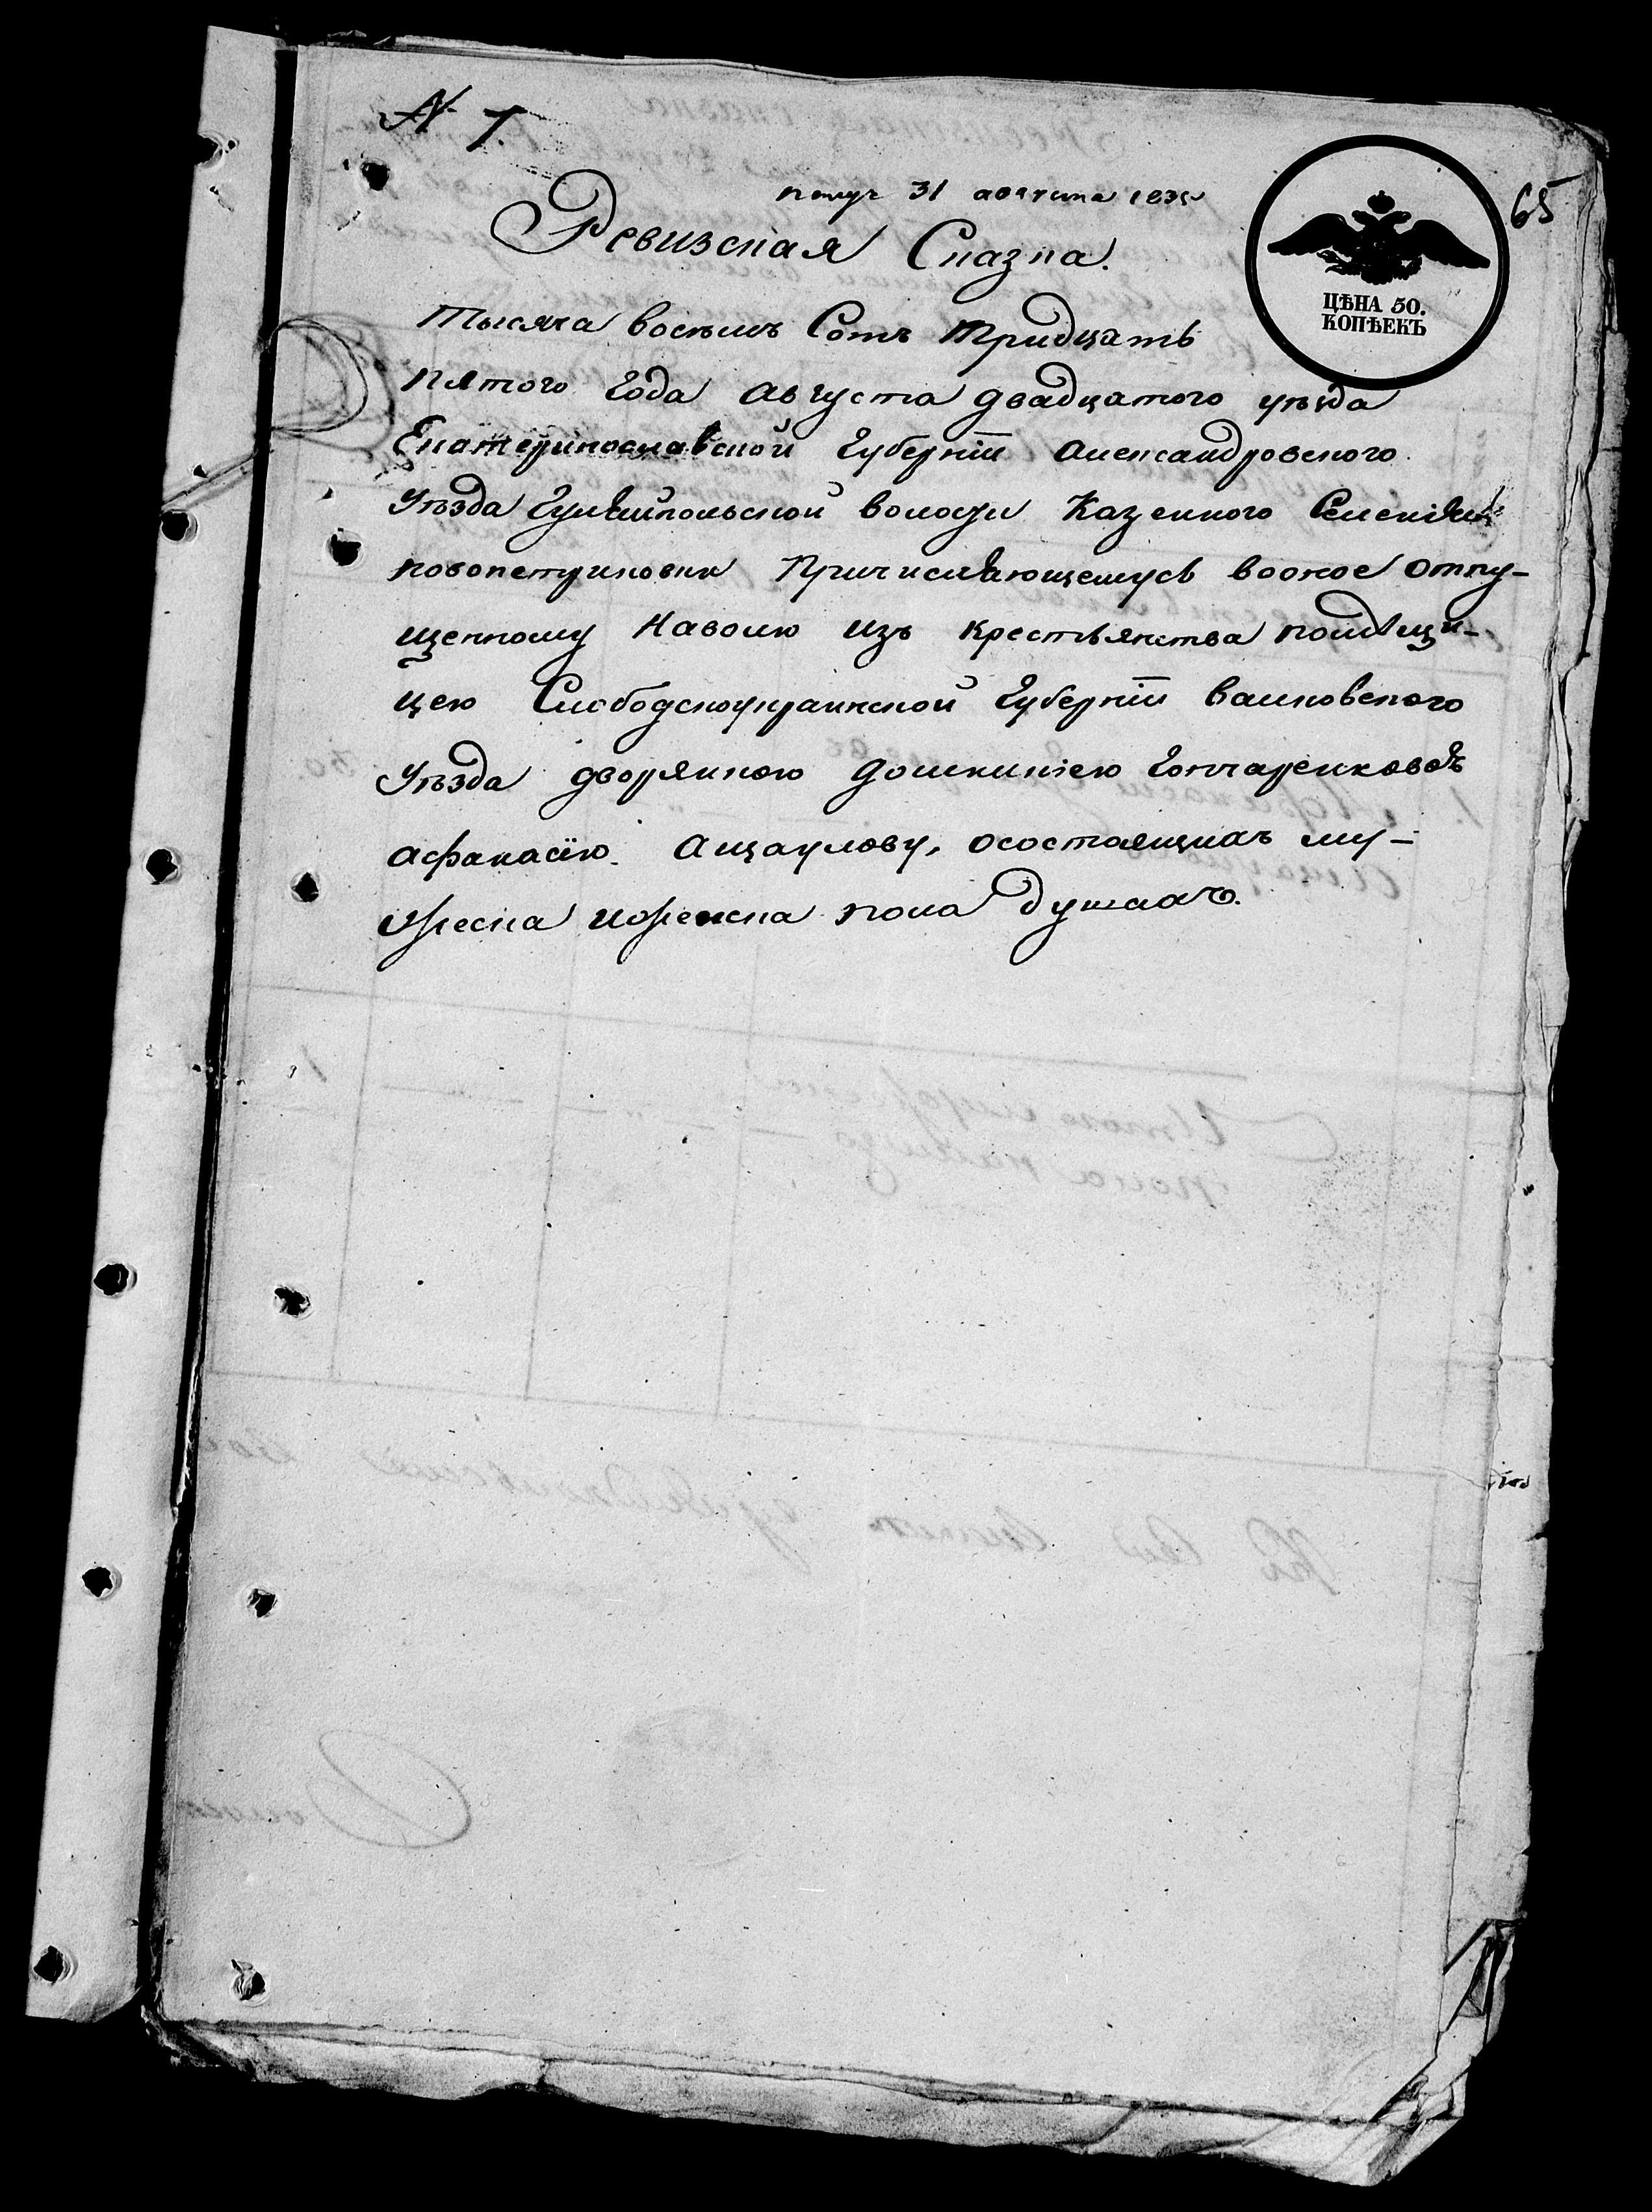 № 7.
получ 31 августа 1835
65
Ревизская Сказка.
ЦѢНА 50.
КОПѢЕКЪ
Тысяча восемъ Сотъ тридцать
пятого года августа двадцатого
Екатеринославской Губерніи Александровского
Уѣзда Гуляйпольской волости Казенного Селенія
новопетриковки Причисляющемуся вооное отпу-
щенному наволю изъ крестьянства помѣщи-
цею Слободскоукраинской Губерніи валковского
Уѣзда дворянкою Гончаренковой
афанасію Ащаулову, осостоящихъ му-
жеска иженска пола душахъ.